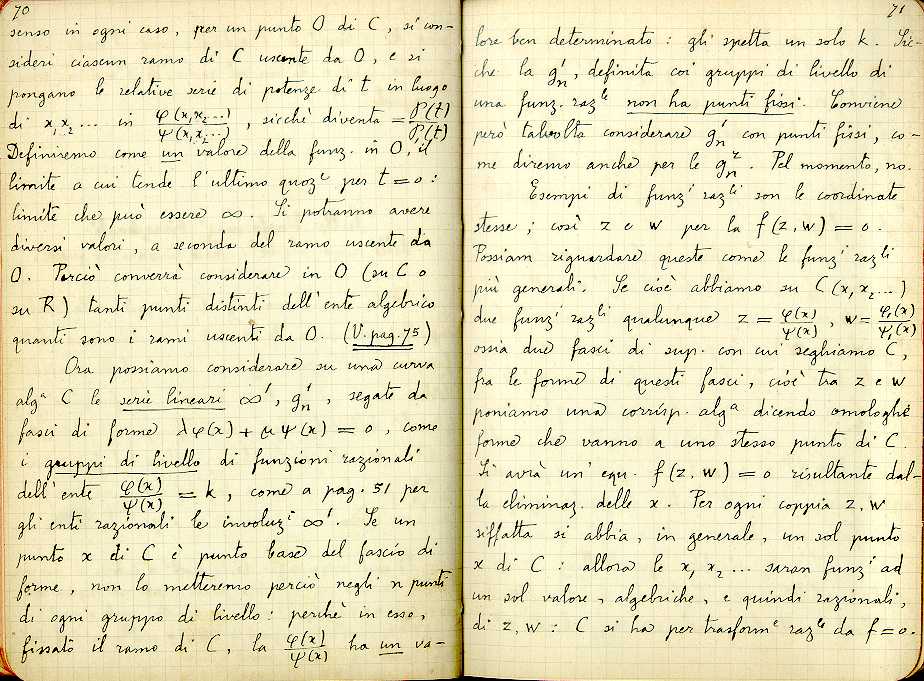 70
senso in ogni caso, per un punto O di C, si con-
sideri ciascun ramo di C uscente da O, e si
pongano le relative serie di potenze di t in luogo
di x₁ x₂ ... in φ(x₁x₂...)/ψ(x₁x₂...), sicchè diventa = P(t)/P₁(t)
Definiremo come un valore della funz. in O, il
limite a cui tende l'ultimo quozᵉ per t=0:
limite che può essere ∞. Si potranno avere
diversi valori, a seconda del ramo uscente da
O. Perciò converrà considerare in O (su C o
su R) tanti punti distinti dell'ente algebrico
quanti sono i rami uscenti da O. (V. pag. 75)
Ora possiamo considerare su una curva
algᵃ C le serie lineari ∞¹, g¹ₙ, segate da
fasci di forme λφ(x)+μψ(x)=0, come
i gruppi di livello di funzioni razionali
dell'ente φ(x)/ψ(x) = k, come a pag. 51 per
gli enti razionali le involuzⁱ ∞¹. Se un
punto x di C è punto base del fascio di
forme, non lo metteremo perciò negli n punti
di ogni gruppo di livello: perchè in esso,
fissato il ramo di C, la φ(x)/ψ(x) ha un va-
71
lore ben determinato: gli spetta un solo k. Sic-
chè la g¹ₙ, definita coi gruppi di livello di
una funz. razˡᵉ non ha punti fissi. Conviene
però talvolta considerare g¹ₙ con punti fissi, co-
me diremo anche per le gʳₙ. Pel momento, no.
Esempi di funzⁱ razˡⁱ son le coordinate
stesse; così z e w per la f(z,w)=0.
Possiam riguardare queste come le funzⁱ razˡⁱ
più generali. Se cioè abbiamo su C(x₁ x₂ ...)
due funzⁱ razˡⁱ qualunque z = φ(x)/ψ(x), w = φ₁(x)/ψ₁(x)
ossia due fasci di sup. con cui seghiamo C,
fra le forme di questi fasci, cioè tra z e w
poniamo una corrisp. algᵃ dicendo omologhe
forme che vanno a uno stesso punto di C.
Si avrà un'equ. f(z,w)=0 risultante dal-
la eliminaz. delle x. Per ogni coppia z, w
siffatta si abbia, in generale, un sol punto
x di C: allora le x₁ x₂ ... saran funzⁱ ad
un sol valore, algebriche, e quindi razionali,
di z, w: C si ha per trasformᵉ razˡᵉ da f=0.